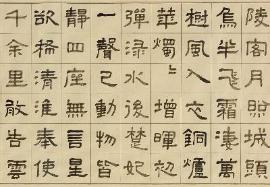 陵客月照城頭
烏半飛霜淒萬
樹風入衣銅爐
華燭〻增暉初
彈淥水後楚妃
一聲已動物皆
靜四座無言星
欲稀清淮奉使
千余里敢告雲